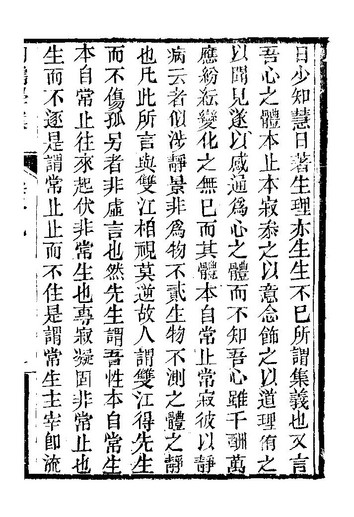 日少知慧日著生理亦生生不已所謂集義也又言
吾心之體本止本寂參之以意念飾之以道理侑之
以聞見遂以感通爲心之體而不知吾心雖千酬萬
應紛紜變化之無已而其體本自常止常寂彼以靜
病云者似涉靜景非爲物不貳生物不測之體之靜
也凡此所言與雙江相視莫逆故人謂雙江得先生
而不傷孤另者非虛言也然先生謂吾性本自常生
本自常止往來起伏非常生也專寂凝固非常止也
生而不逐是謂常止止而不住是謂常生主宰卽流